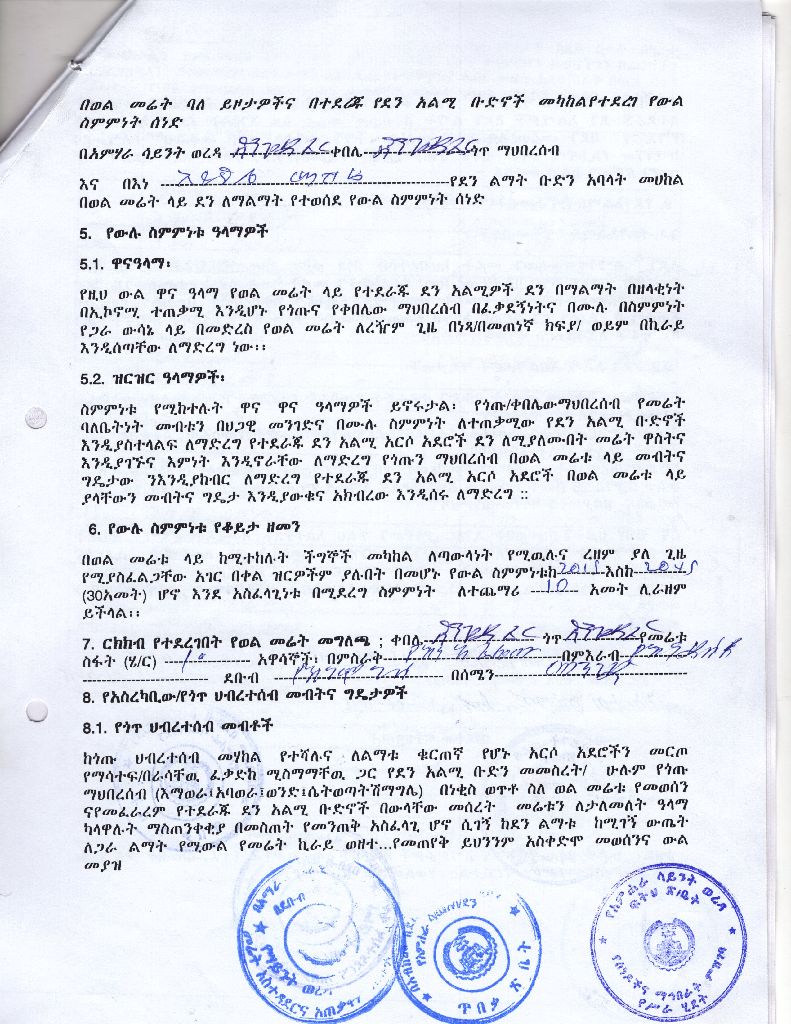 በወል መሬት ባለ ይዞታዎችና በተደረጁ የደን አልሚ ቡድኖች መካከልየተደረገ የውል
ስምምነት ሰነድ
በአምሃራ ሳይንት ወረዳ ቀበሌ ጎጥ ማህበረሰብ
እና በእነ የደን ልማት ቡድን አባላት መሀከል
በወል መሬት ላይ ደን ለማልማት የተወሰደ የውል ስምምነት ሰነድ
5. የውሉ ስምምነቱ ዓላማዎች
5.1. ዋናዓላማ፡
የዚህ ውል ዋና ዓላማ የወል መሬት ላይ የተደራጁ ደን አልሚዎች ደን በማልማት በዘላቂነት
በኢኮኖሚ ተጠቃሚ እንዲሆኑ የጎጡና የቀበሌው ማህበረሰብ በፈቃደኝነትና በሙሉ በስምምነት
የጋራ ውሳኔ ላይ በመድረስ የወል መሬት ለረዥም ጊዜ በነጻ/በመጠነኛ ክፍያ/ ወይም በኪራይ
እንዲሰጣቸው ለማድረግ ነው፡፡
5.2. ዝርዝር ዓላማዎች፡
ስምምነቱ የሚከተሉት ዋና ዋና ዓላማዎች ይኖሩታል፡ የጎጡ/ቀበሌውማህበረሰብ የመሬት
ባለቤትነት መብቱን በህጋዊ መንገድና በሙሉ ስምምነት ለተጠቃሚው የደን አልሚ ቡድኖች
እንዲያስተላልፍ ለማድረግ የተደራጁ ደን አልሚ አርሶ አደሮች ደን ለሚያለሙበት መሬት ዋስትና
እንዲያገኙና እምነት እንዲኖራቸው ለማድረግ የጎጡን ማህበረሰብ በወል መሬቱ ላይ መብትና
ግዴታው ንእንዲያከብር ለማድረግ የተደራጁ ደን አልሚ አርሶ አደሮች በወል መሬቱ ላይ
ያላቸውን መብትና ግዴታ እንዲያውቁና አክብረው እንዲሰሩ ለማድረግ ::
6. የውሉ ስምምነቱ የቆይታ ዘመን
በወል መሬቱ ላይ ከሚተከሉት ችግኞች መካከል ለጣውላነት የሚዉሉና ረዘም ያለ ጊዜ
የሚያስፈልጋቸው አገር በቀል ዝርዎችም ያሉበት በመሆኑ የውል ስምምነቱከ 2015 እስከ 2045
(30አመት) ሆኖ እንደ አስፈላጊነቱ በሚደረግ ስምምነት ለተጨማሪ 10 አመት ሊራዘም
ይችላል፡፡
7. ርክክብ የተደረገበት የወል መሬት መግለጫ ; ቀበሌ ጎጥ የመሬቱ
ስፋት (ሄ/ር) አዋሳኞች፡ በምስራቅ በምእራብ
ደቡብ በሰሜን
8. የአስረካቢው/የጎጥ ሀብረተሰብ መብትና ግዴታዎች
8.1. የጎጥ ህብረተሰብ መብቶች
ከጎጡ ህብረተሰብ መሃከል የተሻሉና ለልማቱ ቁርጠኛ የሆኑ አርሶ አደሮችን መርጦ
የማሳተፍ/በራሳቸዉ ፈቃድከ ሚስማማቸዉ ጋር የደን አልሚ ቡድን መመስረት/ ሁሉም የጎጡ
ማህበረሰብ (እማወራ፤አባወራ፤ወንድ፤ሴትወጣትሽማግሌ) በነቂስ ወጥቶ ስለ ወል መሬቱ የመወሰን
ናየመፈራረም የተደራጁ ደን አልሚ ቡድኖች በውላቸው መሰረት መሬቱን ለታለመለት ዓላማ
ካላዋሉት ማስጠንቀቂያ በመስጠት የመንጠቅ አስፈላጊ ሆኖ ሲገኝ ከደን ልማቱ ከሚገኝ ውጤት
ለጋራ ልማት የሚውል የመሬት ኪራይ ወዘተ...የመጠየቅ ይህንንም አስቀድሞ መወሰንና ውል
መያዝ